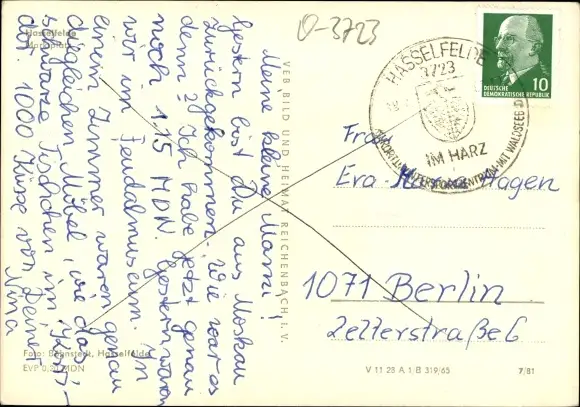 Hasselfelde
Marktplatz
O-3723
Meine kleine Mama!
Gestern bist Du aus Moskau
zurückgekommen. Wie war es
denn? Ich habe jetzt genau
noch 1,15 MDN. Gestern waren
wir im Feudalmuseum. In
einem Zimmer waren genau
diegleichen Möbel, wie das
schwarze Tischchen im
dst. 1000 Küsse von Deiner
Nina
VEB BILD UND HEIMAT REICHENBACH I. V.
HASSELFELDE
3723
IM HARZ
ERHOLUNGS
WINTERSPORTZENTRUM MIT WALDSEEBAD
10
DEUTSCHE
DEMOKRATISCHE REPUBLIK
Frau
Eva-Maria Hagen
1071 Berlin
Zellerstraße 6
Foto: Bähnstedt, Hasselfelde
EVP 0,20 MDN
V 11 28 A 1/B 319/65
7/81